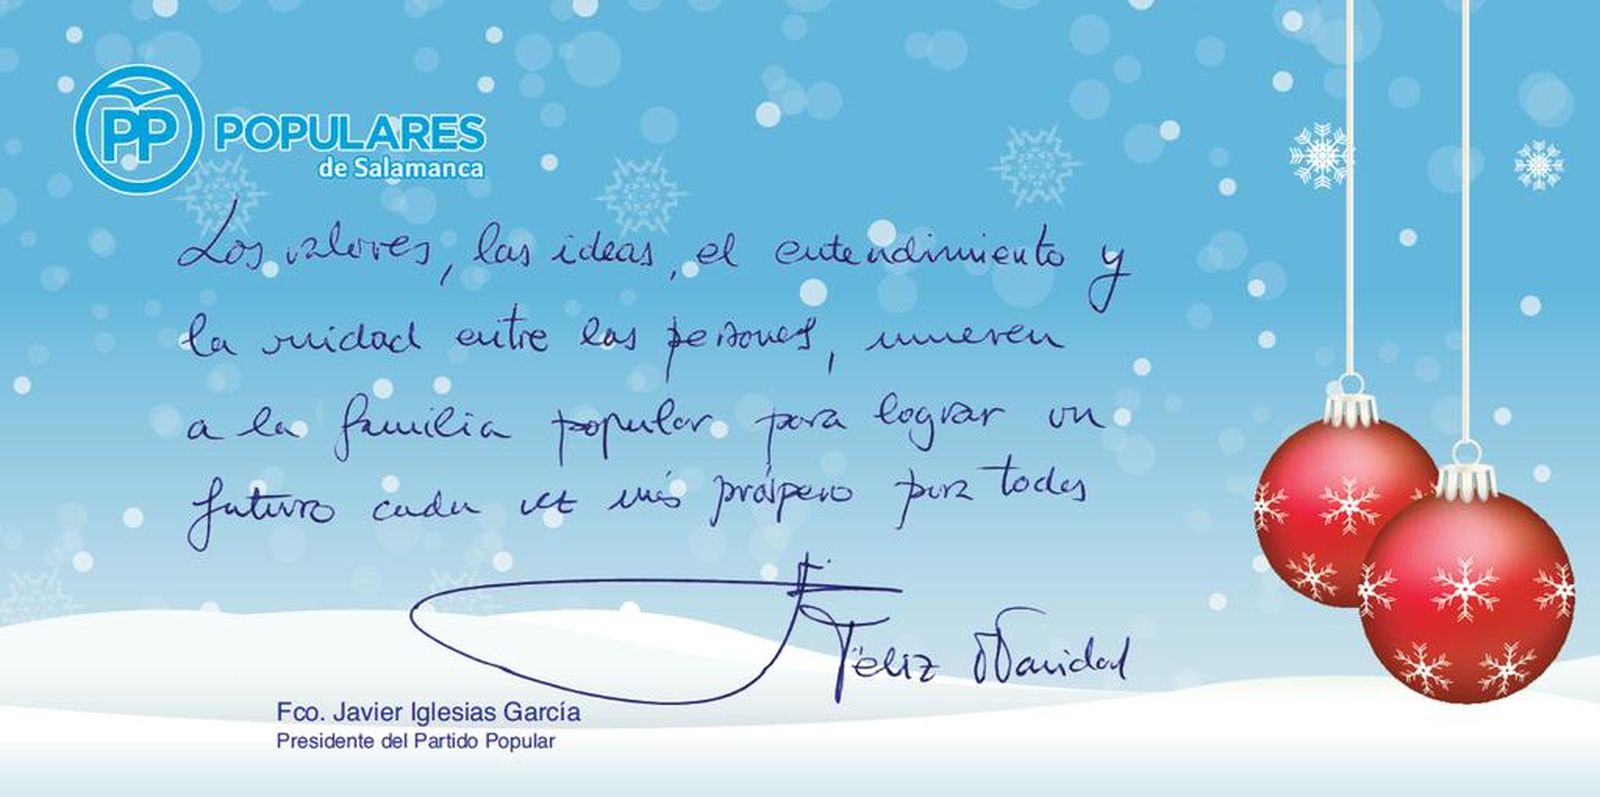 PP POPULARES
de Salamanca
Los valores, las ideas, el entendimiento y
la unidad entre las personas, mueven
a la familia popular para lograr un
futuro cada vez más próspero para todos
Feliz Navidad
Fco. Javier Iglesias García
Presidente del Partido Popular